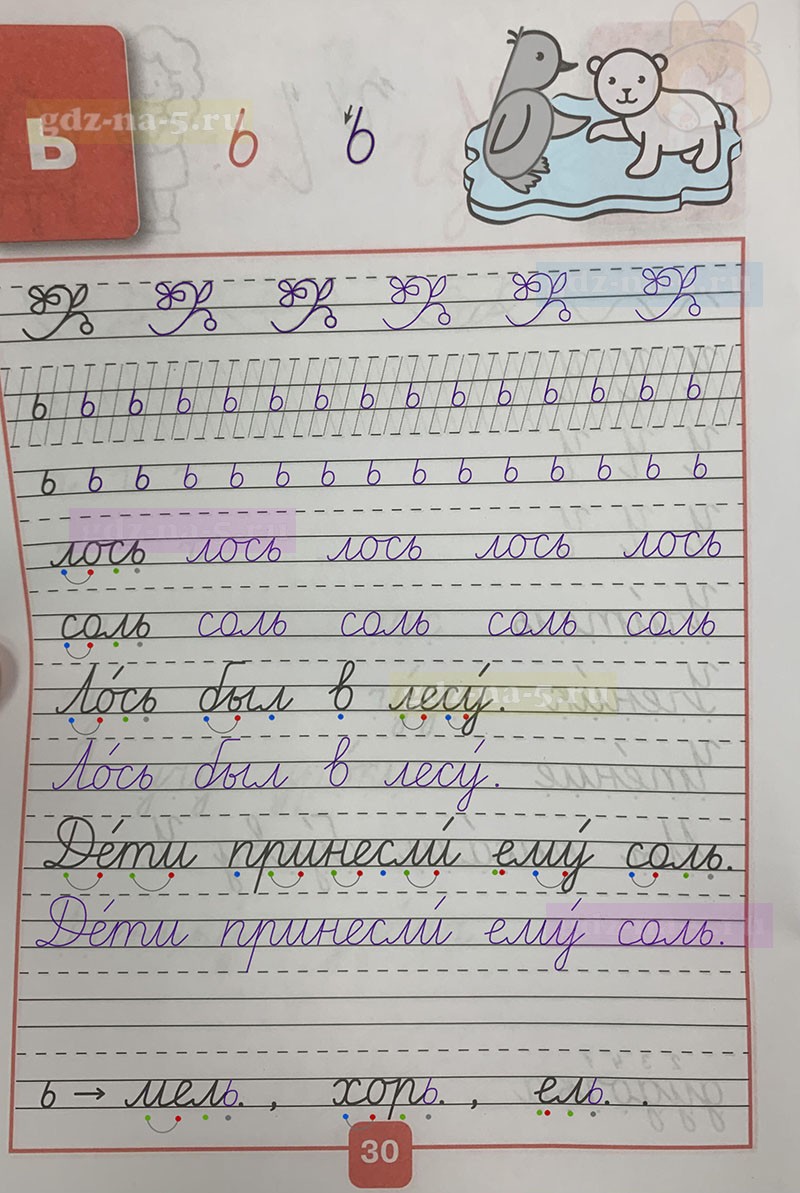 ь
gdz-na-5.ru
ь ь
gdz-na-5.ru
ь ь ь ь ь ь ь ь ь ь ь ь ь ь ь
ь ь ь ь ь ь ь ь ь ь ь ь ь ь ь
gdz-na-5.ru
лось лось лось лось лось
соль соль соль соль соль
gdz-na-5.ru
Ло́сь был в лесу́.
Ло́сь был в лесу́.
Де́ти принесли́ ему́ соль.
Де́ти принесли́ ему́ соль.
ь → мель. , хорь. , ель. .
30